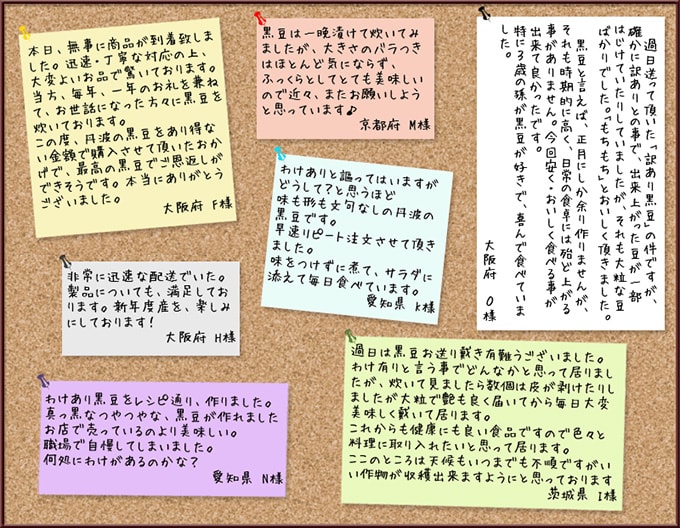 本日、無事に商品が到着致しま
した。迅速・丁寧な対応の上、
大変よいお品で驚いております。
当方、毎年、一年のお礼を兼ね
て、お世話になった方々に黒豆を
炊いております。
この度、丹波の黒豆をあり得な
い金額で購入させて頂いたおか
げで、最高の黒豆でご恩返しが
できそうです。本当にありがとう
ございました。
大阪府 F様
黒豆は一晩漬けて炊いてみ
ましたが、大きさのバラつき
はほとんど気にならず、
ふっくらとしてとても美味しい
ので近々、またお願いしよう
と思っています♪
京都府 M様
過日送って頂いた「訳あり黒豆」の件ですが、
確かに訳ありとの事で、出来上がった豆が一部
はじけていたりしていましたが、それも大粒な豆
ばかりでした。「もちもち」とおいしく頂きました。
黒豆と言えば、正月にしか余り作りませんが、
それも時期的に高く、日常の食卓には殆ど上がる
事がありません。今回安く・おいしく食べる事が
出来て良かったです。
特に3歳の孫が黒豆が好きで、喜んで食べていま
した。
大阪府 O様
わけありと謳ってはいますが
どうして?と思うほど
味も形も文句なしの丹波の
黒豆です。
早速リピート注文させて頂き
ました。
味をつけずに煮て、サラダに
添えて毎日食べています。
愛知県 K様
非常に迅速な配送でいた。
製品についても、満足してお
ります。新年度産を、楽しみ
にしております!
大阪府 H様
わけあり黒豆をレシピ通り、作りました。
真っ黒なつやつやな、黒豆が作れました
お店で売っているのより美味しい。
職場で自慢してしまいました。
何処にわけがあるのかな?
愛知県 N様
過日は黒豆お送り戴き有難うございました。
わけ有りと言う事でどんなかと思って居りまし
たが、炊いて見ましたら数個は皮が剥けたりし
ましたが大粒で艶も良く届いてから毎日大変
美味しく戴いて居ります。
これからも健康にも良い食品ですので色々と
料理に取り入れたいと思って居ります。
ここのところは天候もいつまでも不順ですがい
い作物が収穫出来ますようにと思っております
茨城県 I様